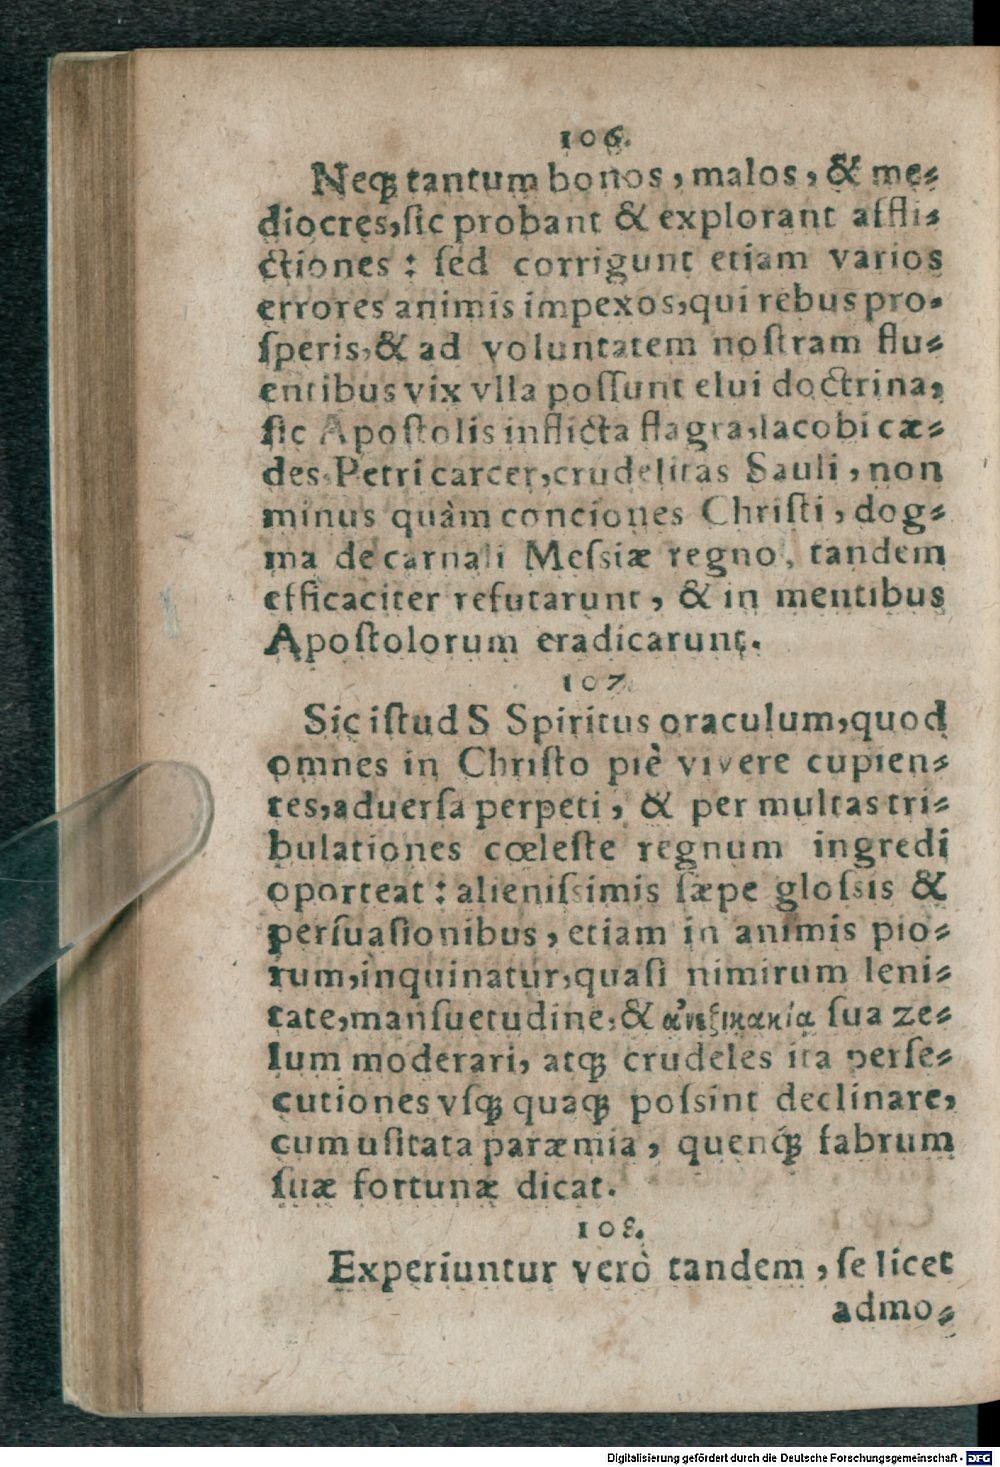 106.
Neq́; tantum bonos, malos, & me⸗
diocres, ſic probant & explorant affli⸗
ctiones: ſed corrigunt etiam varios
errores animis impexos, qui rebus pro⸗
ſperis, & ad voluntatem noſtram flu⸗
entibus vix vlla poſſunt elui doctrina,
ſic Apoſtolis inflicta flagra, Iacobi cæ⸗
des, Petri carcer, crudelitas Sauli, non
minus quàm conciones Chriſti, dog⸗
ma de carnali Meſsiæ regno, tandem
efficaciter refutarunt, & in mentibus
Apoſtolorum eradicarunt.
107.
Sic iſtud S Spiritus oraculum, quod
omnes in Chriſto piè vivere cupien⸗
tes, aduerſa perpeti, & per multas tri⸗
bulationes cœleſte regnum ingredi
oporteat: alieniſsimis ſæpe gloſsis &
perſuaſionibus, etiam in animis pio⸗
rum, inquinatur, quaſi nimirum leni⸗
tate, manſuetudine, & ἀνεξικακία ſua ze⸗
lum moderari, atq; crudeles ita perſe⸗
cutiones vſq; quaq; poſsint declinare,
cum uſitata paræmia, quenq́; fabrum
ſuæ fortunæ dicat.
108.
Experiuntur verò tandem, ſe licet
admo⸗
Digitalisierung gefördert durch die Deutsche Forschungsgemeinschaft - DFG